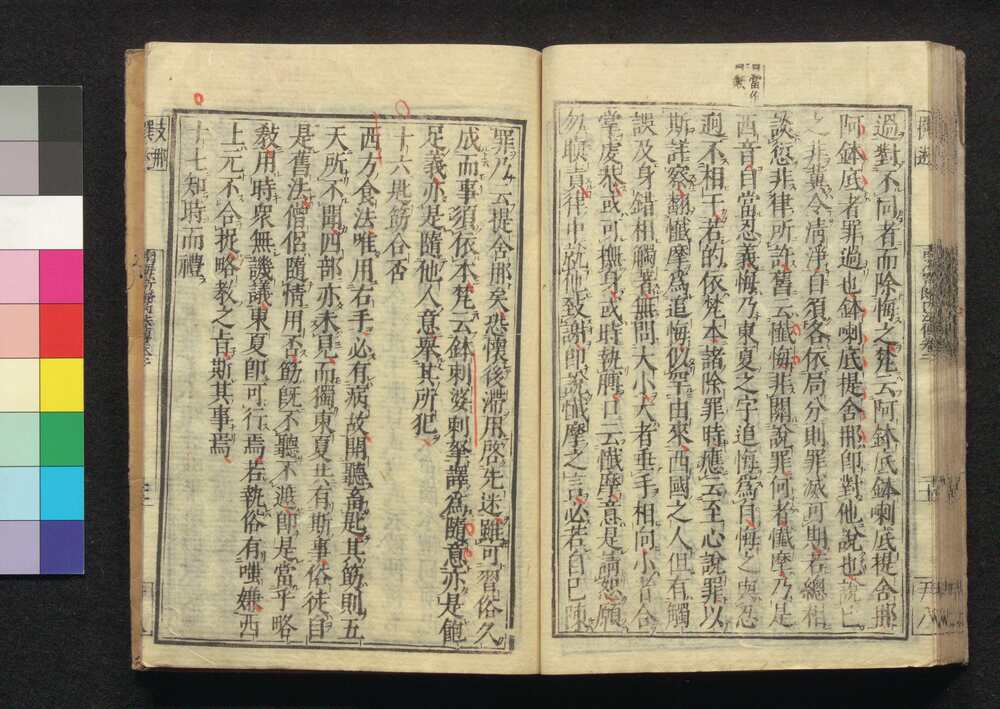 過對不同者而除悔之梵云阿鉢底鉢喇底提舍那
阿鉢底者罪過也鉢喇底提舍那即對他說也說己
之非冀令清淨自須各依局分則罪滅可期若總相
談愆非律所許舊云懺悔非關說罪何者懺摩乃是
西音自當忍義悔乃東夏之字追悔為目悔之與忍
迥不相干若的依梵本諸除罪時應云至心說罪以
斯詳察翻懺摩為追悔似罕由來西國之人但有觸
誤及身錯相觸著無問大小大者垂手相向小者合
掌虔恭或可撫身或時執膊口云懺摩意是請恕願
勿瞋責律中就他致謝即說懺摩之言必若自己陳
罪乃云提舍那矣恐懷後滯用啓先迷雖可習俗久
成而事須依本梵云鉢剌婆剌拏譯為隨意亦是飽
足義亦是隨他人意舉其所犯
十六匙筯合否
西方食法唯用右手必有病故開聽畜匙其筯則五
天所不聞四部亦未見而獨東夏共有斯事俗徒自
是舊法僧侶隨情用否筯既不聽不遮即是當乎略
教用時衆無譏議東夏即可行焉若執俗有嗤嫌西
上元不合捉略教之旨斯其事焉
十七知時而禮